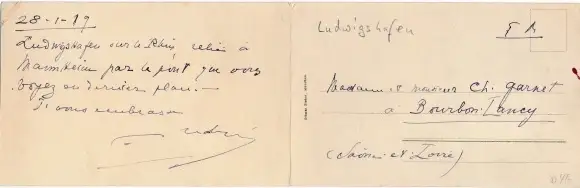 28-1-19
Ludwigshafen sur le Rhin relié à
Mannheim par le pont que vous
voyez en dernier plan.-
Je vous embrasse
André
Ludwigshafen
F M
Madame et monsieur Ch. Garnet
à Bourbon-Lancy
(Saône et Loire)